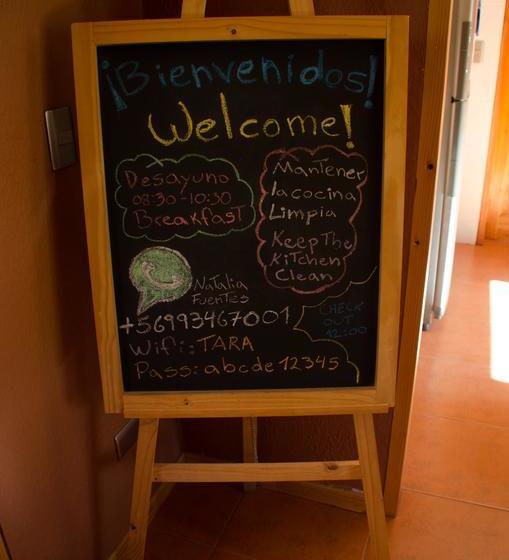 ¡Bienvenidos!
Welcome!
Desayuno
08:30-10:30
Breakfast
Mantener
la cocina
Limpia
Keep The
Kitchen
Clean
Natalia
Fuentes
+56993467001
CHECK
OUT
12:00
Wifi: TARA
Pass: abcde12345